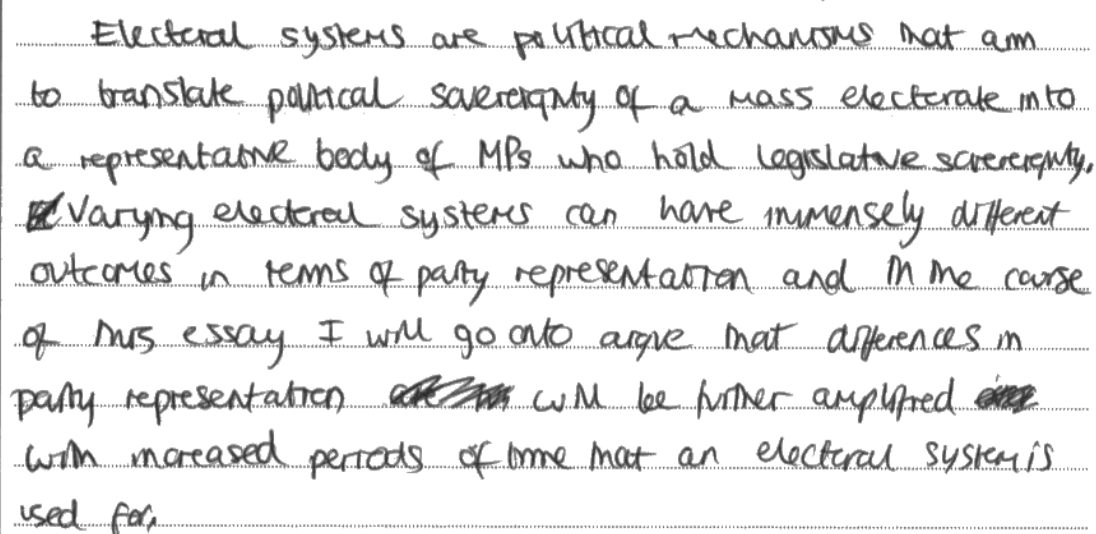 Electoral systems are political mechanisms that aim
to translate political sovereignty of a mass electorate into
a representative body of MPs who hold legislative sovereignty.
Varying electoral systems can have immensely different
outcomes in terms of party representation and in the course
of this essay I will go onto argue that differences in
party representation will be further amplified
with increased periods of time that an electoral system is
used for.